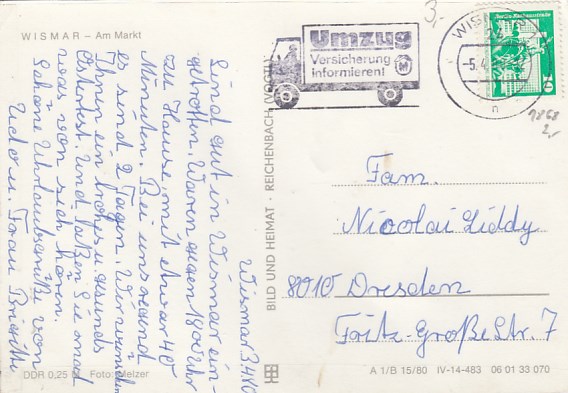 WISMAR – Am Markt
Wismar 3.4.80
Sind gut in Wismar ein-
getroffen. Waren gegen 1800 Uhr
zu Hause, mit etwa 40
Minuten. Bei uns
es sind 2 Tagen. Wir wünschen
Ihnen ein frohes u. gesundes
Osterfest. Und laßen Sie mal
was von sich hören.
Schöne Urlaubsgrüße von
Udo u. Frau
DDR 0,25 M Foto: Melzer
BILD UND HEIMAT · REICHENBACH (VOGTL)
Umzug
Versicherung
informieren!
WISMAR
-5.4.
n
3,-
1868
2,-
Fam.
Nicolai Liddy
8010 Dresden
Fritz-Große Str. 7
A 1/B 15/80 IV-14-483 06 01 33 070